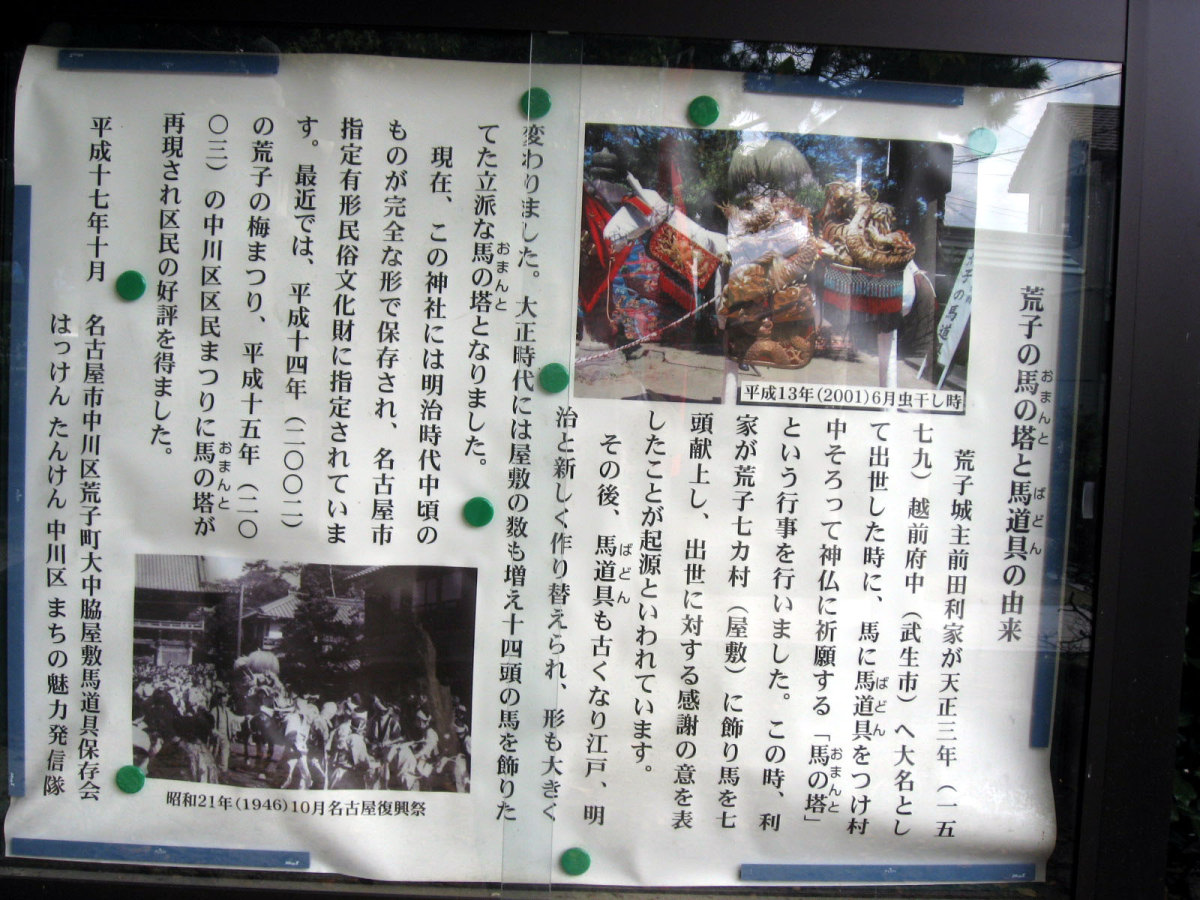 荒子の馬の塔と馬道具の由来
おまんと
ばどん
荒子城主前田利家が天正三年（一五
七九）越前府中（武生市）へ大名とし
て出世した時に、馬に馬道具をつけ村
ばどん
中そろって神仏に祈願する「馬の塔」
おまんと
という行事を行いました。この時、利
家が荒子七カ村（屋敷）に飾り馬を七
頭献上し、出世に対する感謝の意を表
したことが起源といわれています。
その後、馬道具も古くなり江戸、明
ばどん
治と新しく作り替えられ、形も大きく
変わりました。大正時代には屋敷の数も増え十四頭の馬を飾りた
てた立派な馬の塔となりました。
おまんと
現在、この神社には明治時代中頃の
ものが完全な形で保存され、名古屋市
指定有形民俗文化財に指定されていま
す。最近では、平成十四年（二〇〇二）
の荒子の梅まつり、平成十五年（二〇
〇三）の中川区区民まつりに馬の塔が
おまんと
再現され区民の好評を得ました。
平成十七年十月
名古屋市中川区荒子町大中脇屋敷馬道具保存会
はっけん たんけん 中川区 まちの魅力発信隊
平成13年(2001)6月虫干し時
子の馬道
昭和21年(1946)10月名古屋復興祭